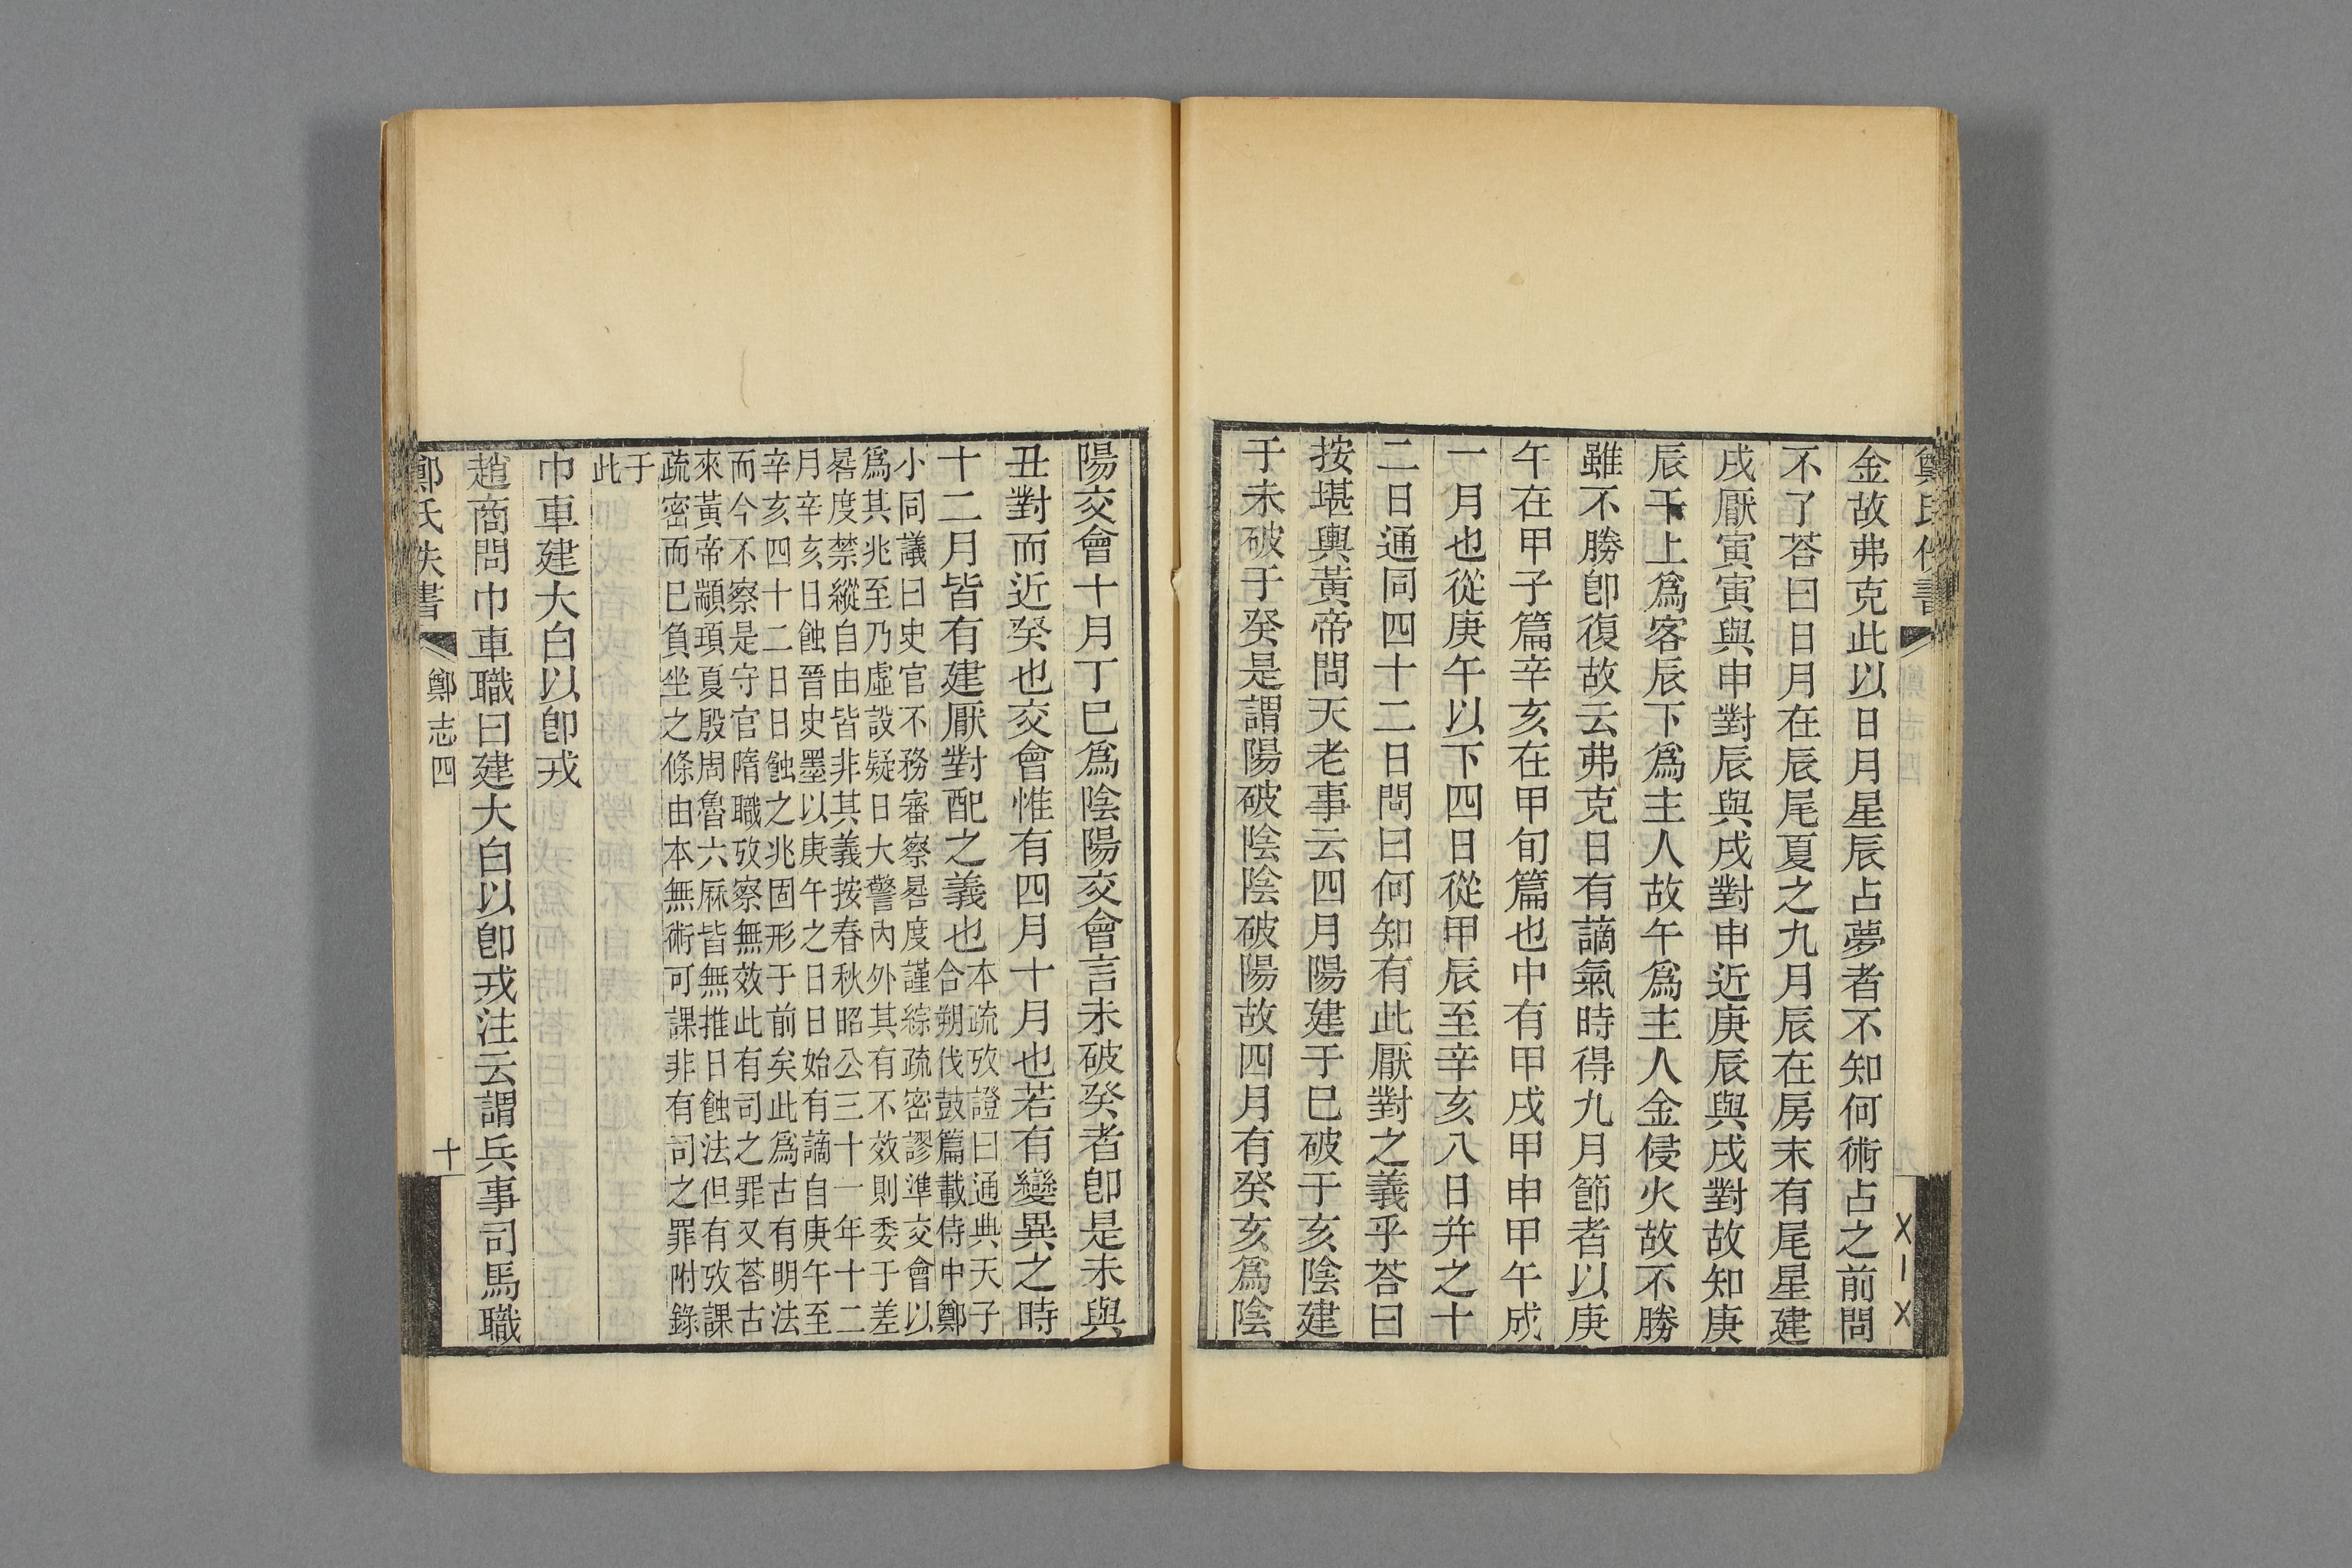 金故弗克此以日月星辰占夢者不知何術占之前問
不了荅曰日月在辰尾夏之九月辰在房末有尾星建
戌厭寅寅與申對辰與戌對申近庚辰與戌對故知庚
辰千上爲客辰下爲主人故午爲主人金侵火故不勝
雖不勝卽復故云弗克日有謫氣時得九月節者以庚
午在甲子篇辛亥在甲旬篇也中有甲戌甲申甲午成
一月也從庚午以下四日從甲辰至辛亥八日幷之十
二日通同四十二日問曰何知有此厭對之義乎荅曰
按堪輿黃帝問天老事云四月陽建于巳破于亥陰建
于未破于癸是謂陽破陰陰破陽故四月有癸亥爲陰
陽交會十月丁巳爲陰陽交會言未破癸者卽是未與
丑對而近癸也交會惟有四月十月也若有變異之時
十二月皆有建厭對配之義也
本疏攷證曰通典天子
合朔伐鼓篇載侍中鄭
小同議曰史官不務審察晷度謹綜疏密謬準交會以
爲其兆至乃虛設疑日大警內外其有不效則委于差
晷度禁縱自由皆非其義按春秋昭公三十一年十二
月辛亥日蝕晉史墨以庚午之日日始有謫自庚午至
辛亥四十二日日蝕之兆固形于前矣此爲古有明法
而今不察是守官隋職攷察無效此有司之罪又荅古
來黃帝顓頊夏殷周魯六厤皆無推日蝕法但有攷課
疏密而已負坐之條由本無術可課非有司之罪附錄
于
此
巾車建大白以卽戎
趙商問巾車職曰建大白以卽戎注云謂兵事司馬職
鄭氏佚書
鄭志四
十